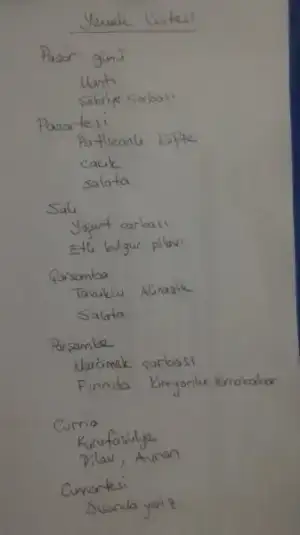 Yemek Listesi
Pazar günü
Mantı
Şehriye çorbası
Pazartesi
Patlıcanlı köfte
Cacık
Salata
Salı
Yoğurt çorbası
Etli bulgur pilavı
Çarşamba
Tavuklu Alinazik
Salata
Perşembe
Mercimek çorbası
Fırında Kıymalı Karnabahar
Cuma
Kurufasulye
Pilav, Ayran
Cumartesi
Dışarıda yeriz